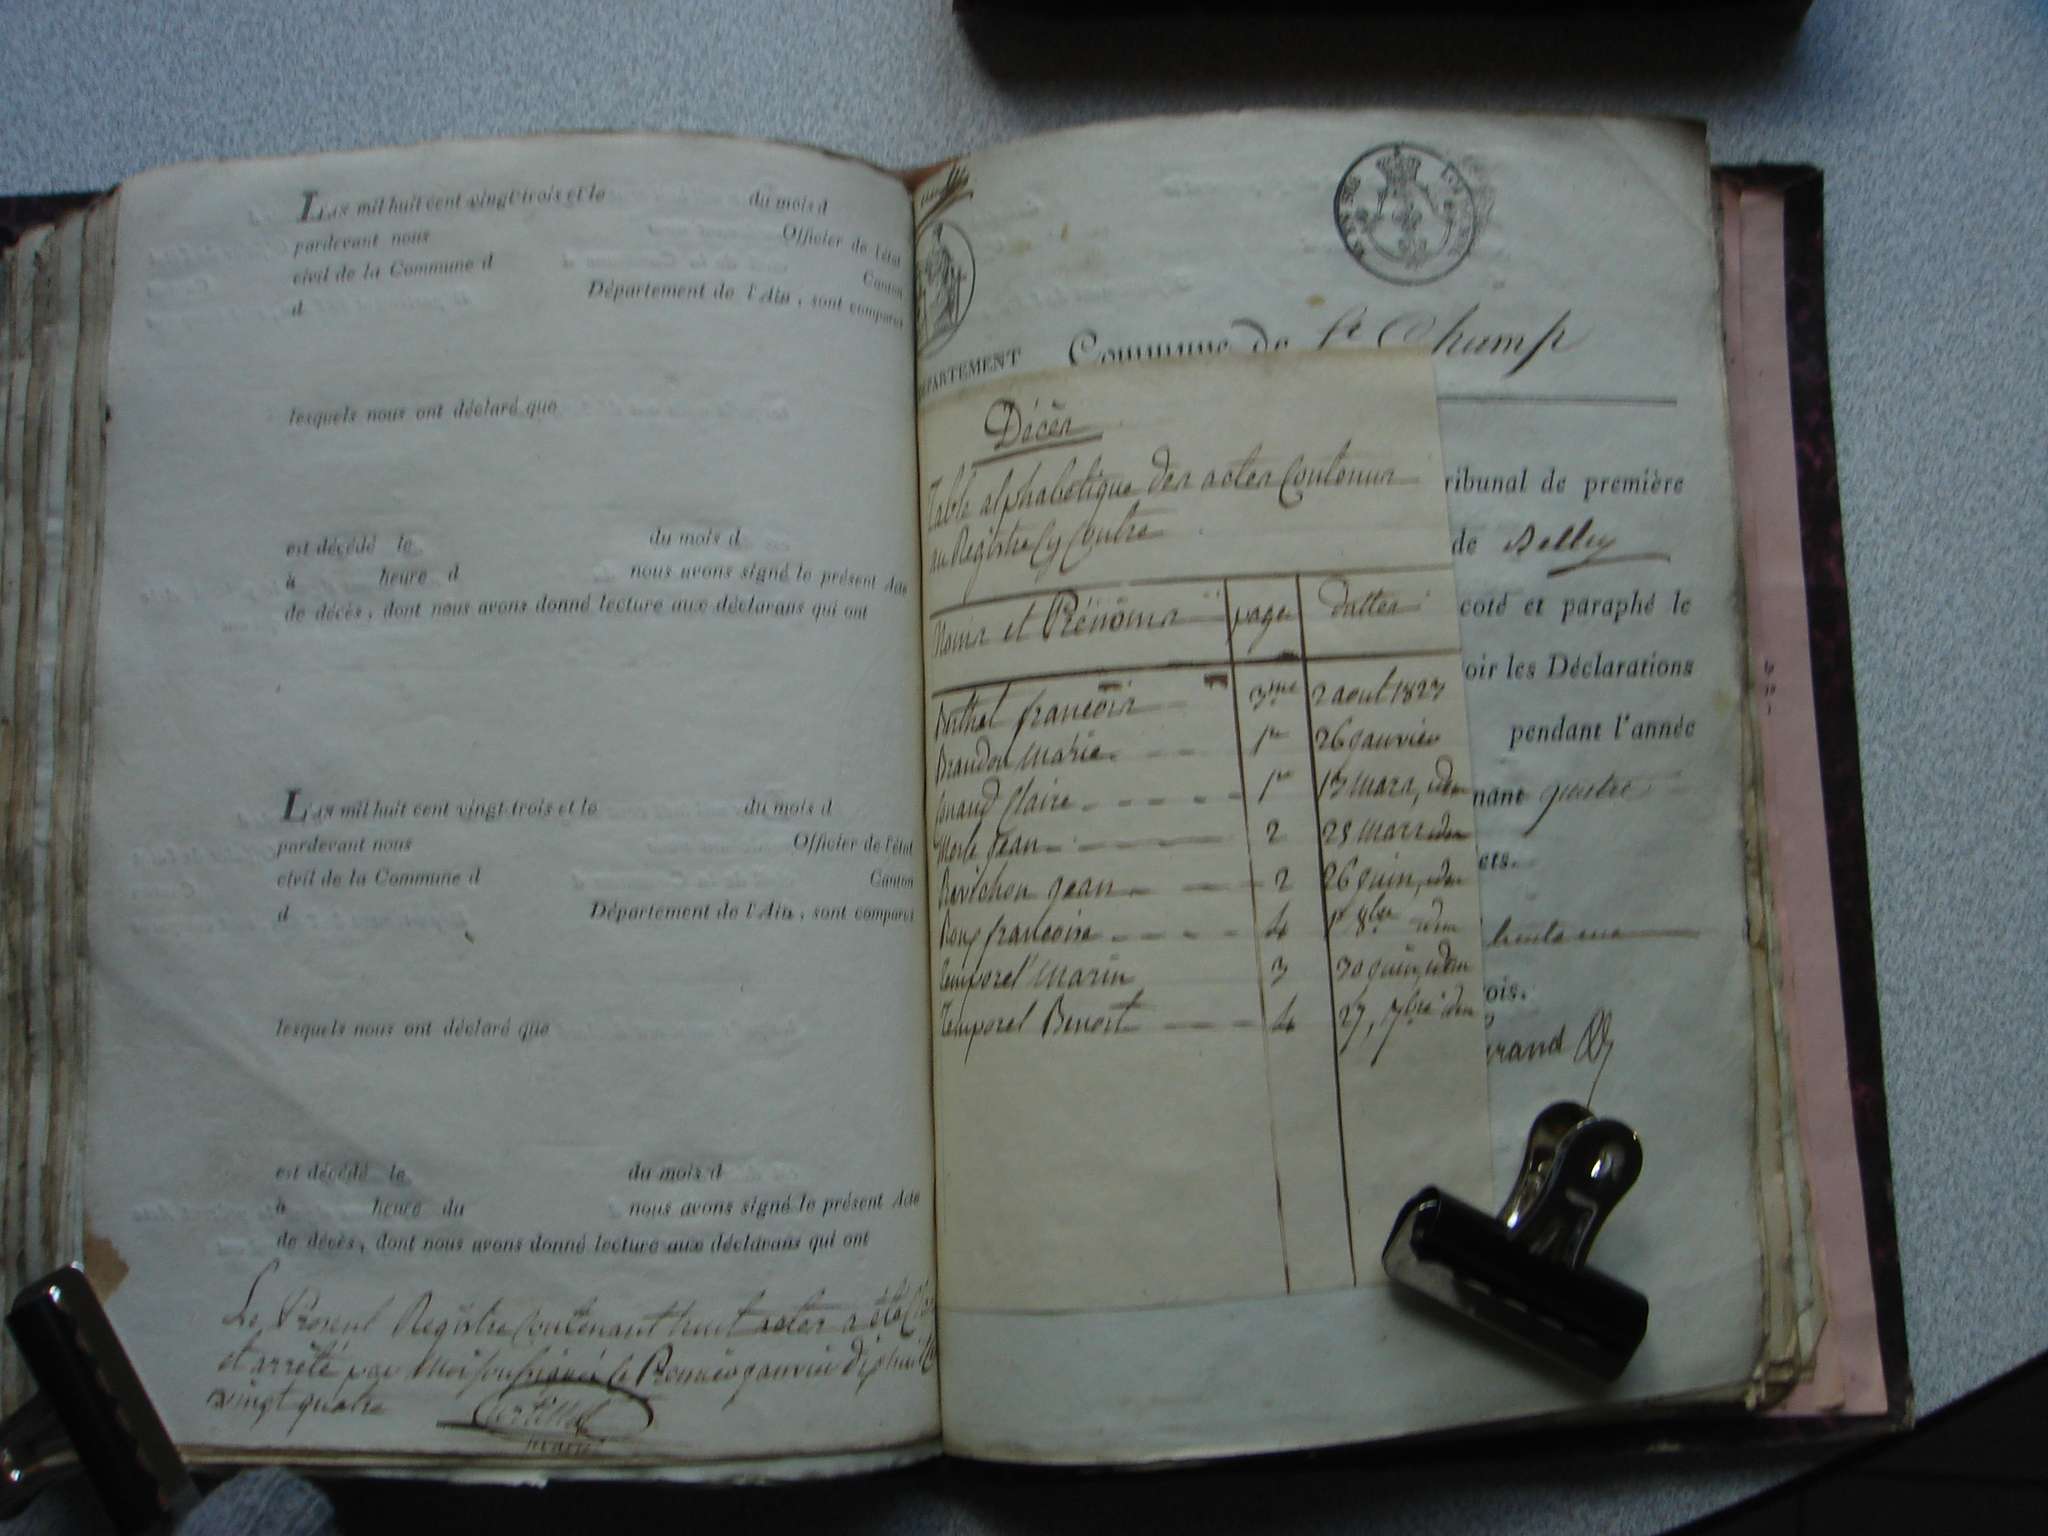 L'AN mil huit cent vingt-trois et le du mois d
pardevant nous Officier de l'état
civil de la Commune d Canton
d Département de l'Ain, sont comparus
lesquels nous ont déclaré que
est décédé le du mois d
à heure d nous avons signé le présent Acte
de décès, dont nous avons donné lecture aux déclarans qui ont
L'AN mil huit cent vingt-trois et le du mois d
pardevant nous Officier de l'état
civil de la Commune d Canton
d Département de l'Ain, sont comparus
lesquels nous ont déclaré que
est décédé le du mois d
à heure du nous avons signé le présent Acte
de décès, dont nous avons donné lecture aux déclarans qui ont
Le Present Registre Contenant huit actes a été
et arrêté par Moi soussigné le Premier janvier dix huit
vingt quatre
DÉPARTEMENT Commune de St Champ
Décès
Table alphabetique des actes Contenus
au Registre Cy Contre
Noms et Prénoms page dattes
Berthet francois 3me 2 aout 1823
Brandon Marie 1re 26 janvier
Claire 1re 13 mars, idem
Jean 2 25 mars idem
Revichon jean 2 26 juin, idem
Roux francoise 4 1er 8bre idem
Temporel Marin 3 30 juin, idem
Temporel Benoit 4 27, 7bre idem
ribunal de première
de Belley
coté et paraphé le
oir les Déclarations
pendant l'année
nant quatre
ets.
trente une
rois.
grand